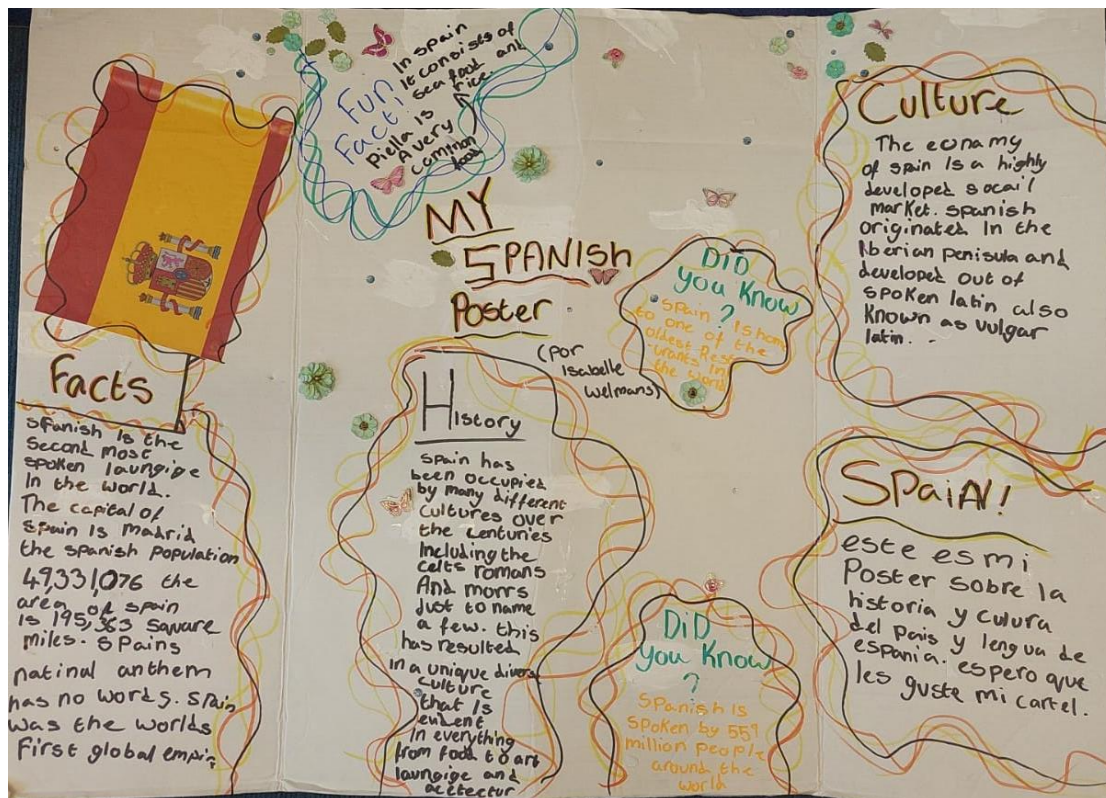 Fun
Fact!
Piella is
A very
common
food
In spain
It consists of
sea food and
rice.
MY
SPANISH
Poster
(por
Isabelle
Welmans)
Facts
spanish is the
Second most
spoken laungige
In the world.
The capital of
Spain is Madrid
the spanish population
49,331,076 the
area of spain
is 195,363 square
miles. Spains
natinal anthem
has no words. Spain
was the worlds
First global empire
History
spain has
been occupied
by many different
cultures over
the centuries
Including the
celts romans
And morrs
Just to name
a few. this
has resulted
in a unique divers
culture
that is
evident
In everything
from food to art
laungige and
acetectur
DiD
you Know
?
Spain is home
to one of the
oldest Rest-
urants In
the world
DiD
you Know
?
Spanish is
spoken by 559
million people
around the
world
Culture
The econamy
of spain Is a highly
developed socail
market. spanish
originated In the
Iberian penisula and
developed out of
spoken latin also
Known as vulgar
latin. . .
SPaiN!
este es mi
Poster sobre la
historia y culura
del pais y lengua de
espania. espero que
les guste mi cartel.